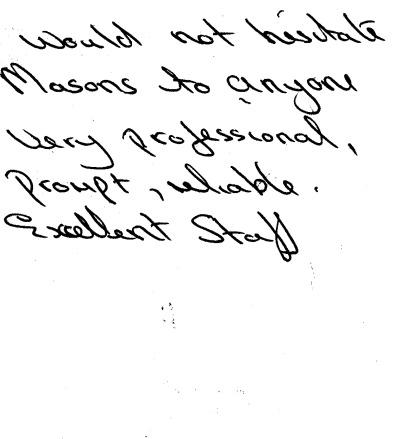 would not hesitate
Masons to anyone
very professional,
prompt, reliable.
Excellent Staff